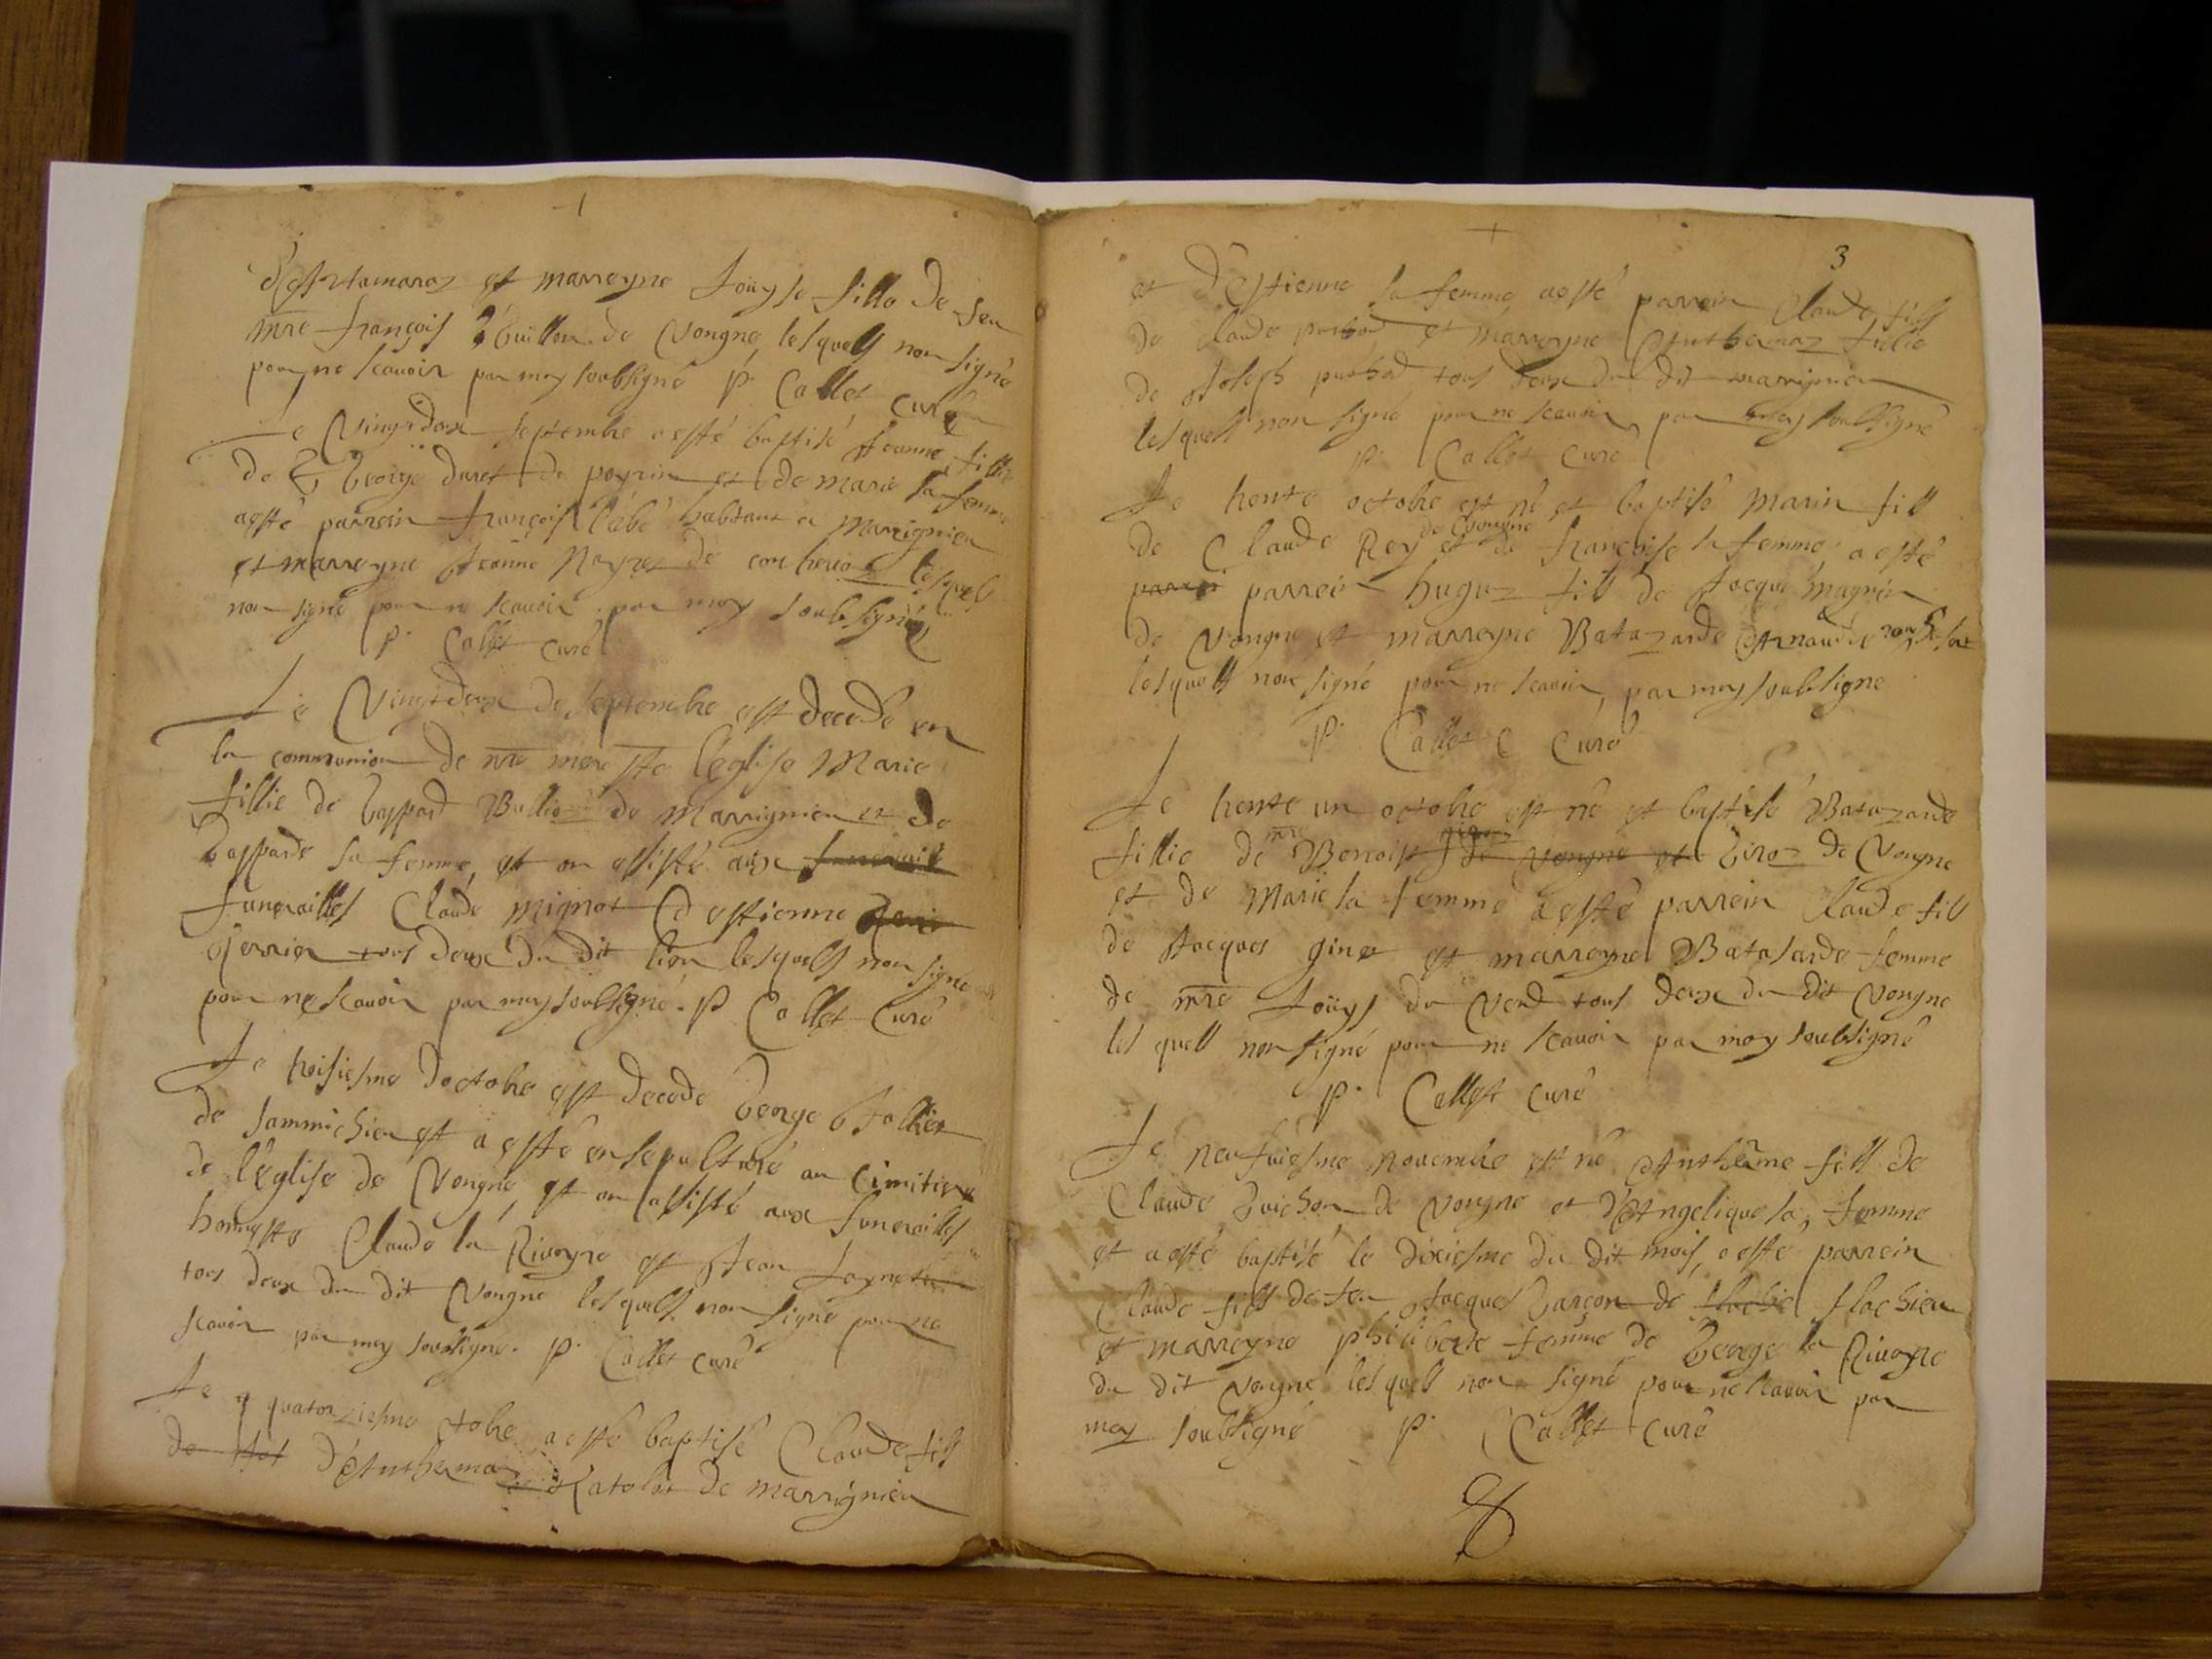 et marreyne Loüyse fille de feu
mre françois Guillon de Vongne lesquells non signé
pour ne scauoir par moy soubsigné p. Collet Curé
Le Vingtdeux septembre a esté baptisé Jeanne fillie
de George duret de peyrin et de marie sa femme
a esté parrein françois habitant a Marrignieu
et marreyne Jeanne de lesquels
non signé pour ne scauoir par moy soubsigné
p. Collet Curé
Le Vingtdeux de septembre est decedé en
la communion de nre mere ste l'eglise Marie
fillie de Gaspard Bullioz de Marrignieu et de
Gasparde sa femme, et on assisté aux
funerailles Claude mignot et d'estienne
tous deux du dit lieu lesquells non signé
pour ne scauoir par moy soubsigné. p Collet Curé
Le troisiesme d'octobre est decedé George
de Sammichieu et a esté ensepulturé au Cimitiere
de l'église de Vongne, et on assisté aux funerailles
honneste Claude la Riuoyre et Jean
tous deux du dit Vongne lesquells non signé pour ne
scauoir par moy soubsigné. p. Collet curé
Le q quatorziesme ctobre a esté baptisé Claude fils
de d'Anthermoz de marrignieu
3
et d'Estienne sa femme a esté parrein Claude fils
de Claude puthod et marreyne Anthermaz fillie
de Joseph puthod tous deux du dit marrignieu
lesquells non signé pour ne scauoir par moy soubsigné
p. Collet Curé
Le trente octobre est né et baptisé Marin fils
de Vongne
de Claude Rey et de françoise sa femme a esté
parrei parrein hugue fils de Jacque magnin
de Vongne et marreyne Batazarde Arnaude
lesquells non signé pour ne scauoir, par moy soubsigné
p. Collet C Curé
Le trente un octobre est né et baptisé Batazarde
mre
fillie de Benoist de Vongne et Giroz de Vongne
et de Marie sa femme a esté parrein Claude fils
de Jacques ginet et marreyne Batasarde femme
de mre Loüys du Verd tous deux du dit Vongne
les quells non signé pour ne scauoir par moy soubsigné
p. Collet Curé
Le neufuiesme nouembre est né Anthelme fils de
Claude Guichon de Vongne et d'Angelique sa femme
et a esté baptisé le dixiesme du dit mois, a esté parrein
Claude fils de feu Jacques Garçon de flachie flachieu
et marreyne philiberte femme de George la Riuoyre
du dit Vongne lesquels non signé pour ne scauoir par
moy soubsigné p. Collet Curé